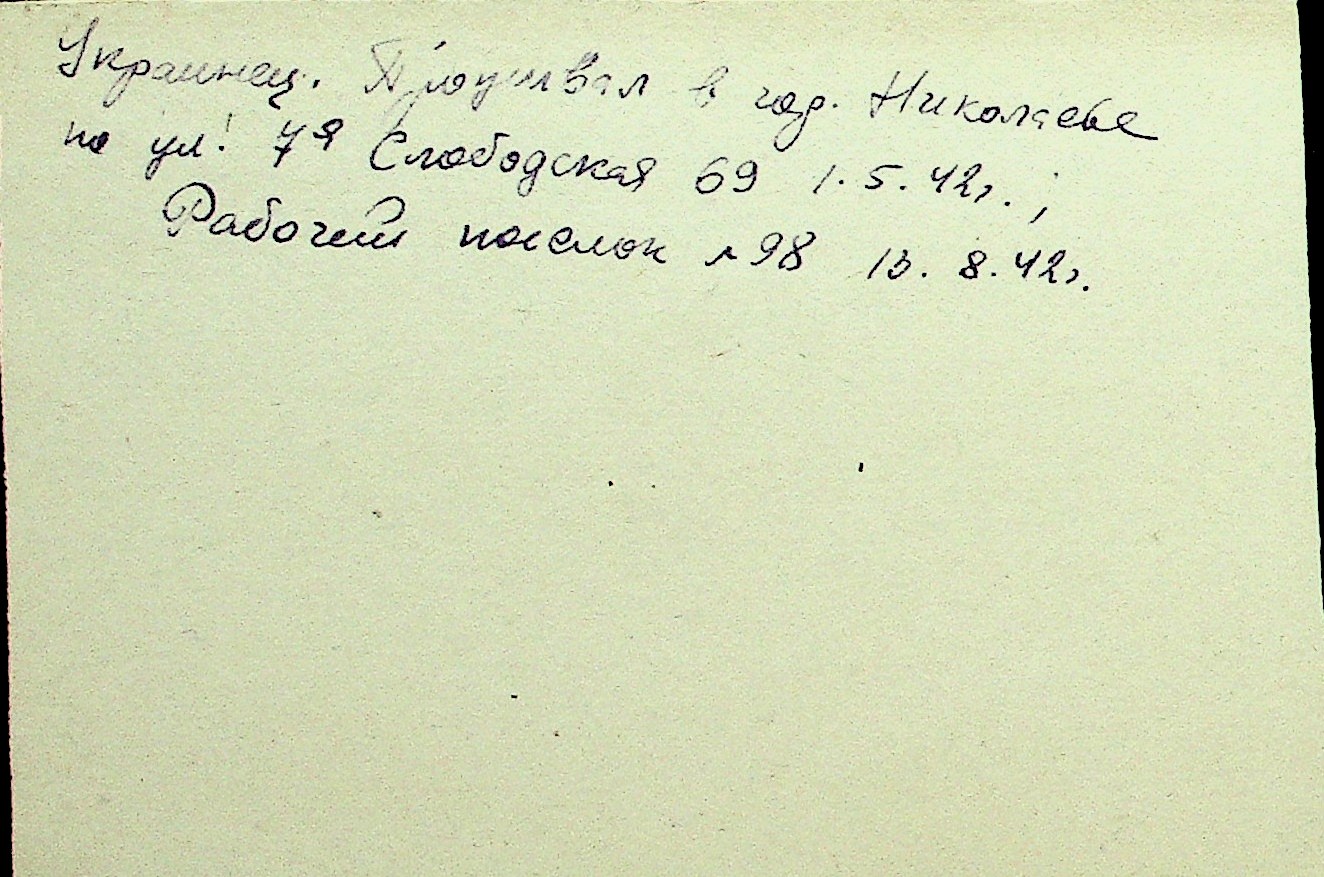 Украинец. Проживал в гор. Николаеве
по ул. 7я Слободская 69 1.5.42г.;
Рабочий поселок 98 13.8.42г.